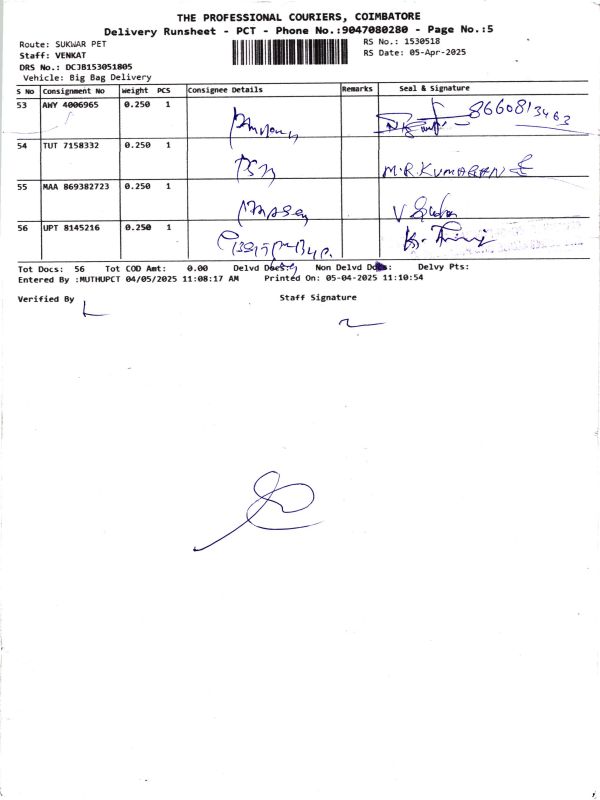 THE PROFESSIONAL COURIERS, COIMBATORE
Delivery Runsheet - PCT - Phone No.:9047080280 - Page No.:5
Route: SUKWAR PET RS No.: 1530518
Staff: VENKAT RS Date: 05-Apr-2025
DRS No.: DCJB153051805
Vehicle: Big Bag Delivery
S No Consignment No Weight PCS Consignee Details Remarks Seal & Signature
53 AWY 4006965 0.250 1 8660813463
54 TUT 7158332 0.250 1 M.R.KUMARAN
55 MAA 869382723 0.250 1
56 UPT 8145216 0.250 1
Tot Docs: 56 Tot COD Amt: 0.00 Delvd Docs: Non Delvd Docs: Delvy Pts:
Entered By :MUTHUPCT 04/05/2025 11:08:17 AM Printed On: 05-04-2025 11:10:54
Verified By Staff Signature